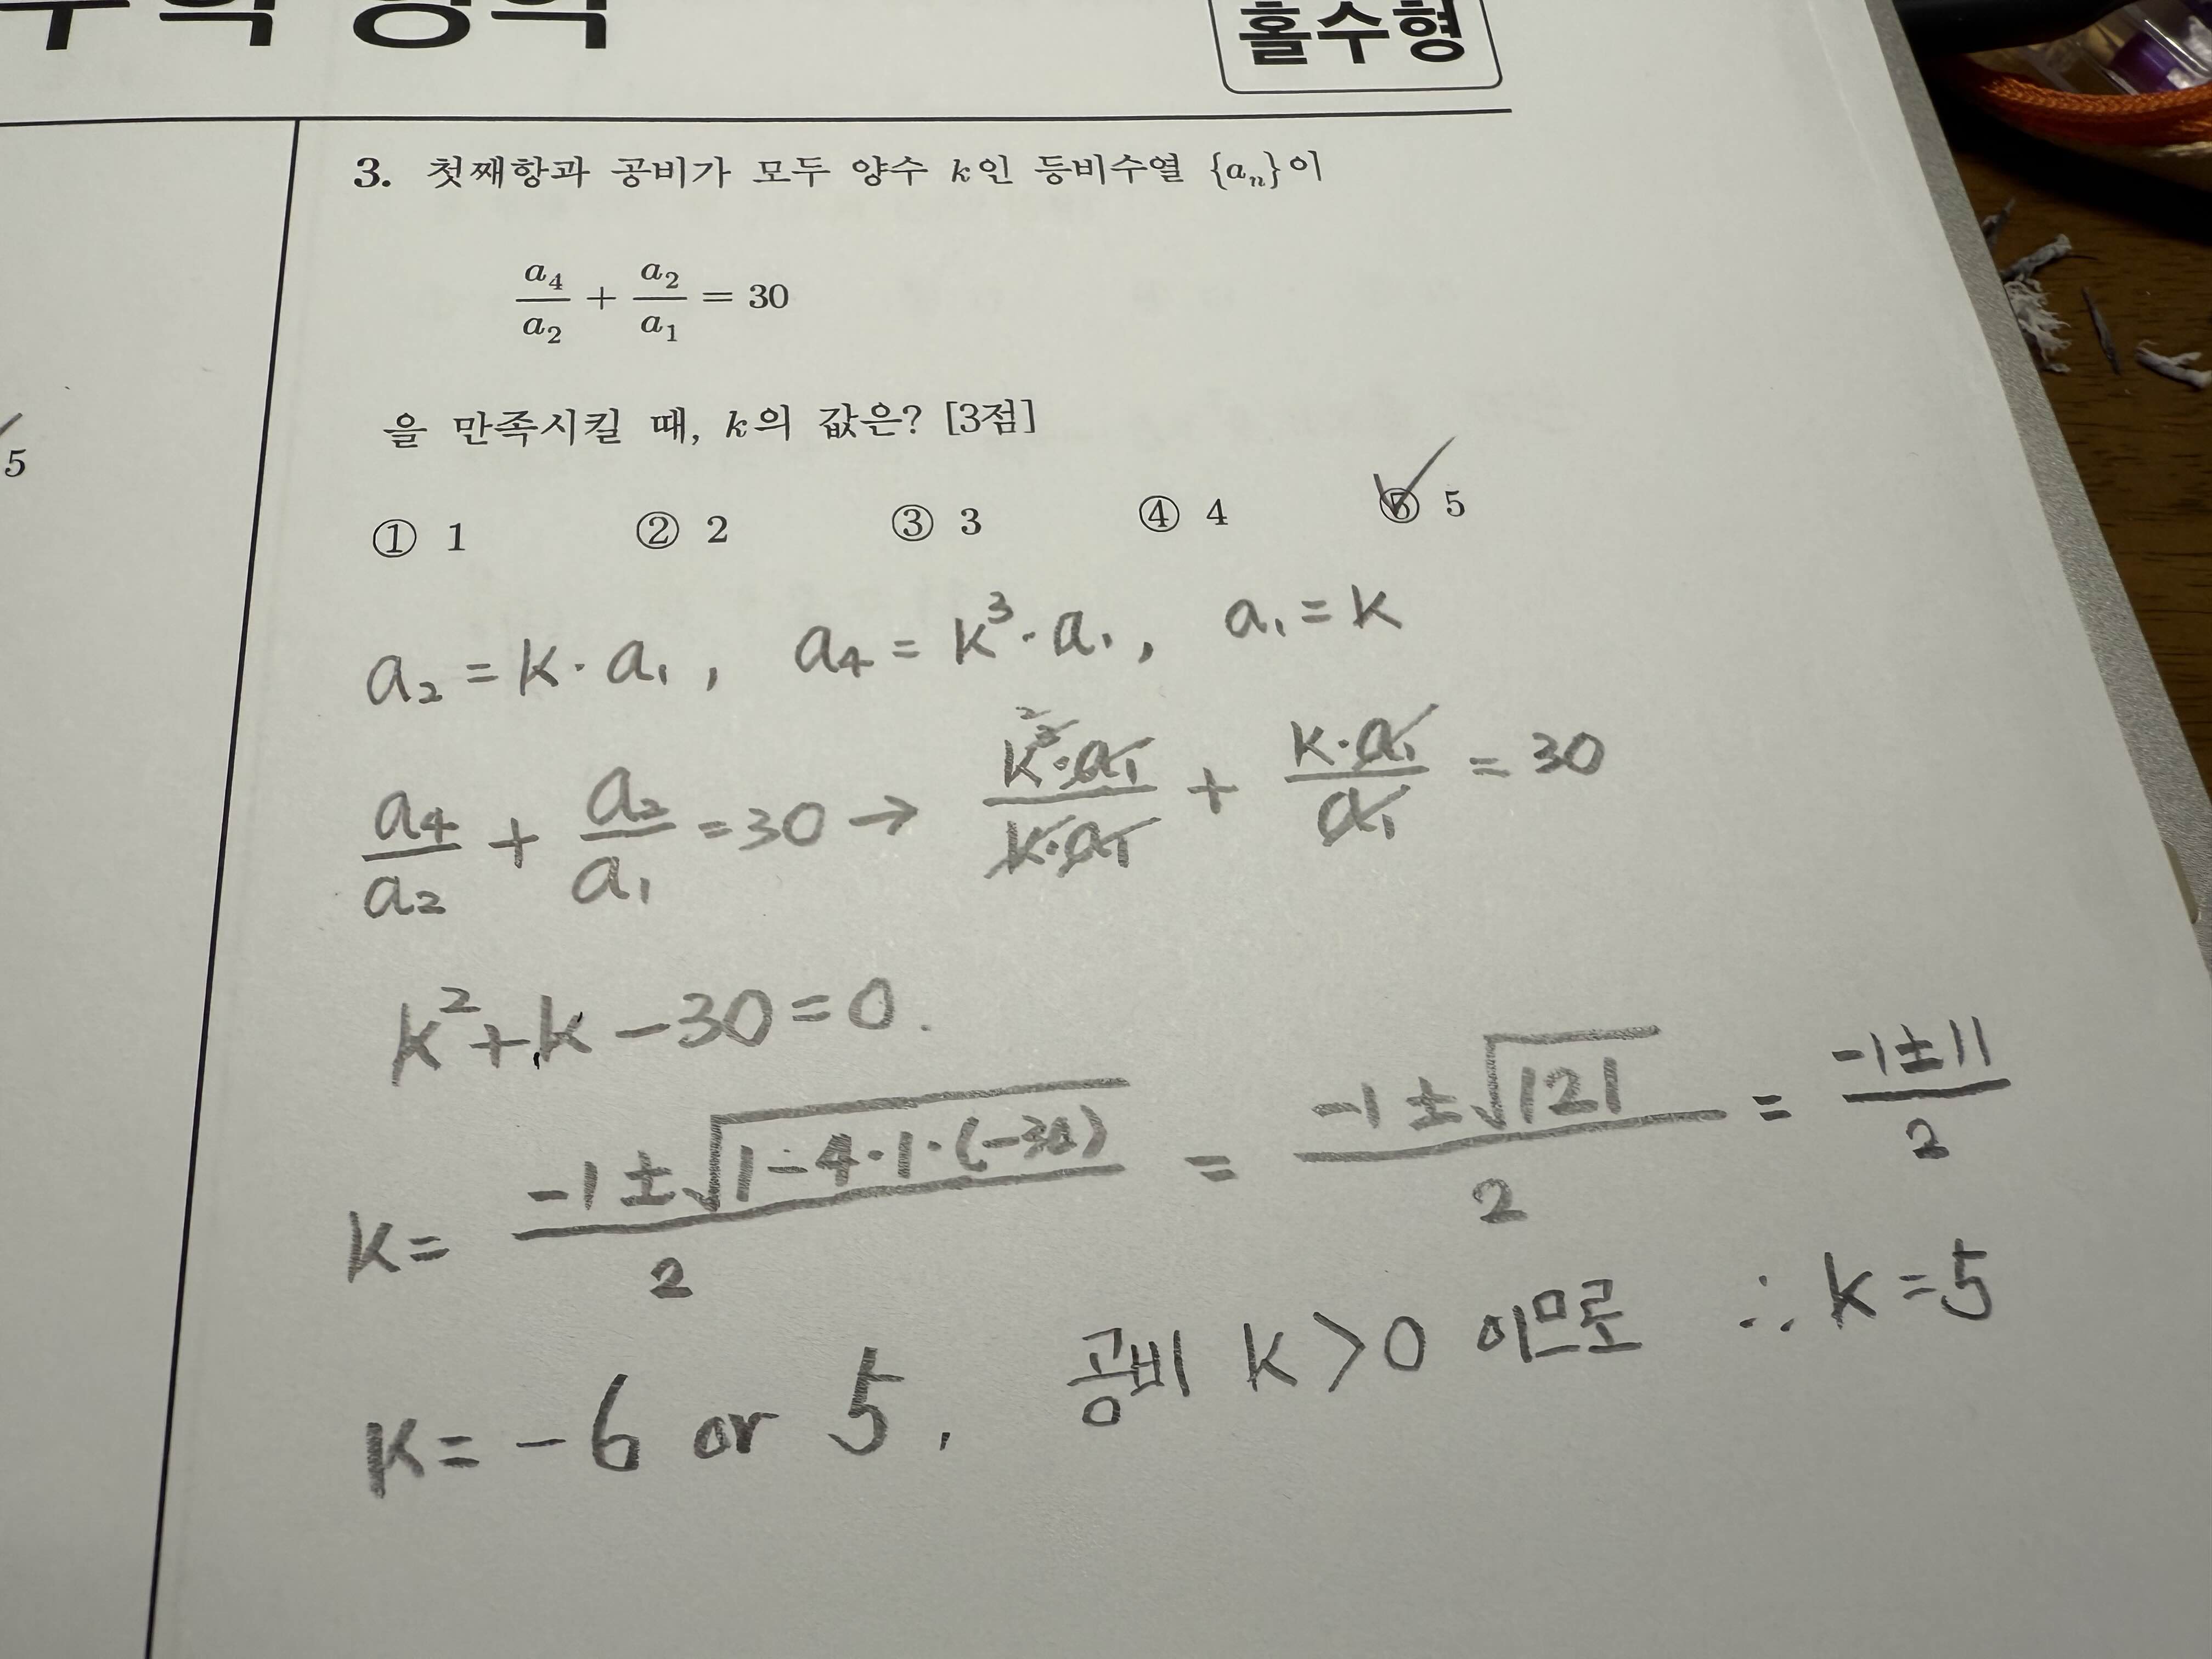 홀수형
5
3. 첫째항과 공비가 모두 양수 k인 등비수열 {aₙ}이
a₄/a₂ + a₂/a₁ = 30
을 만족시킬 때, k의 값은? [3점]
① 1 ② 2 ③ 3 ④ 4 ⑤ 5
a₂ = k · a₁ , a₄ = k³ · a₁ , a₁ = k
a₄/a₂ + a₂/a₁ = 30 → k³·a₁/k·a₁ + k·a₁/a₁ = 30
k² + k − 30 = 0.
k = (−1 ± √(1−4·1·(−30)))/2 = (−1 ± √121)/2 = (−1 ± 11)/2
k = −6 or 5 , 공비 k > 0 이므로 ∴ k = 5